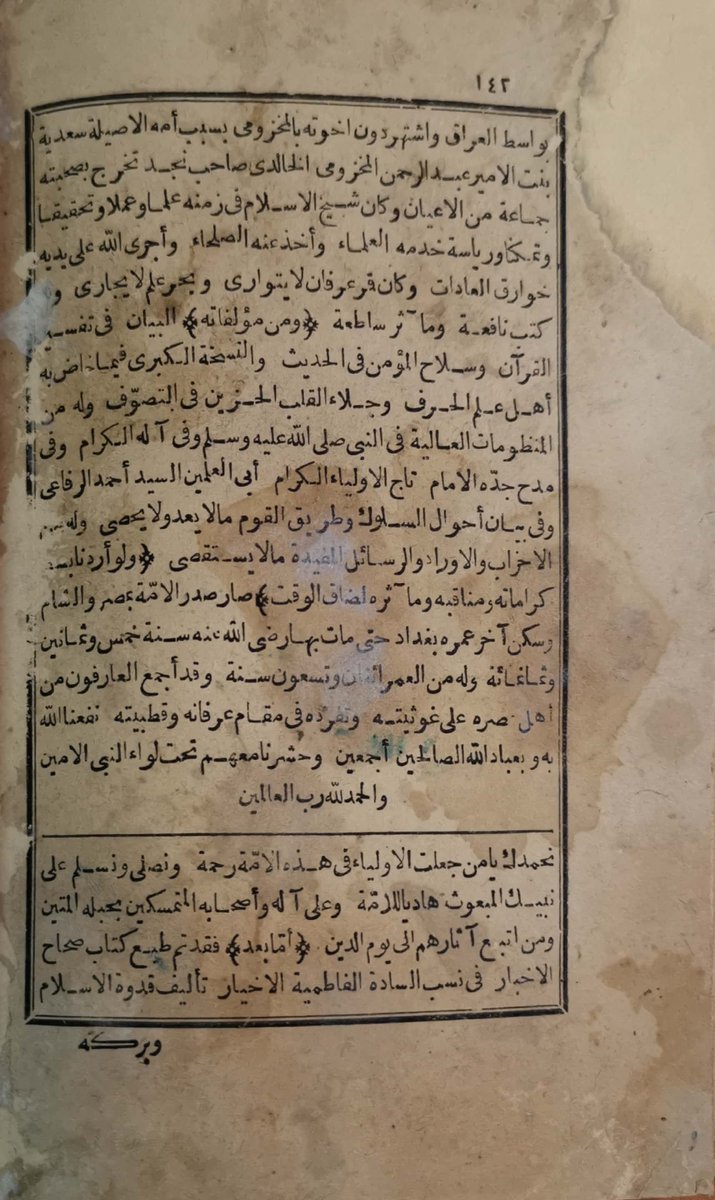 ١٤٢
بواسط العراق واشتهر دون اخوته بالمخزومى بسبب أمه الاصيلة سعدية
بنت الامير عبد الرحمن المخزومى الخالدى صاحب نجد تخرج بصحبته
جماعة من الاعيان وكان شيخ الاسلام فى زمنه علما وعملا وتحقيقا
وتمكنا ورياسة خدمه العلماء وأخذ عنه الصلحاء وأجرى الله على يديه
خوارق العادات وكان قمر عرفان لا يتوارى وبحر علم لا يجارى و
كتب نافعة ومآثر ساطعة ﴿ومن مؤلفاته﴾ البيان فى تفسير
القرآن وسلاح المؤمن فى الحديث والنسخة الكبرى فيما خاض به
أهل علم الحرف وجلاء القلب الحزين فى التصوّف وله من
المنظومات العالية فى النبى صلى الله عليه وسلم وفى آله الكرام وفى
مدح جدّه الامام تاج الاولياء الكرام أبى العلمين السيد أحمد الرفاعى
وفى بيان أحوال السلوك وطريق القوم ما لا يعد ولا يحصى وله من
الاحزاب والاوراد والرسائل المفيدة ما لا يستقصى ﴿ولو أردنا
كراماته ومناقبه ومآثره لضاق الوقت﴾ صار صدر الامّة بمصر والشام
وسكن آخر عمره بغداد حتى مات بها رضى الله عنه سنة خمس وثمانين
وثمانمائة وله من العمر اثنتان وتسعون سنة وقد أجمع العارفون من
أهل عصره على غوثيته وتفرده فى مقام عرفانه وقطبيته نفعنا الله
به وبعباد الله الصالحين أجمعين وحشرنا معهم تحت لواء النبى الامين
والحمد لله رب العالمين
نحمدك يا من جعلت الاولياء فى هذه الامّة رحمة ونصلى ونسلم على
نبيك المبعوث هاديا للامّة وعلى آله وأصحابه المتمسكين بحبله المتين
ومن اتبع آثارهم الى يوم الدين ﴿أمّا بعد﴾ فقد تم طبع كتاب صحاح
الاخبار فى نسب السادة الفاطمية الاخيار تأليف قدوة الاسلام
وبركة